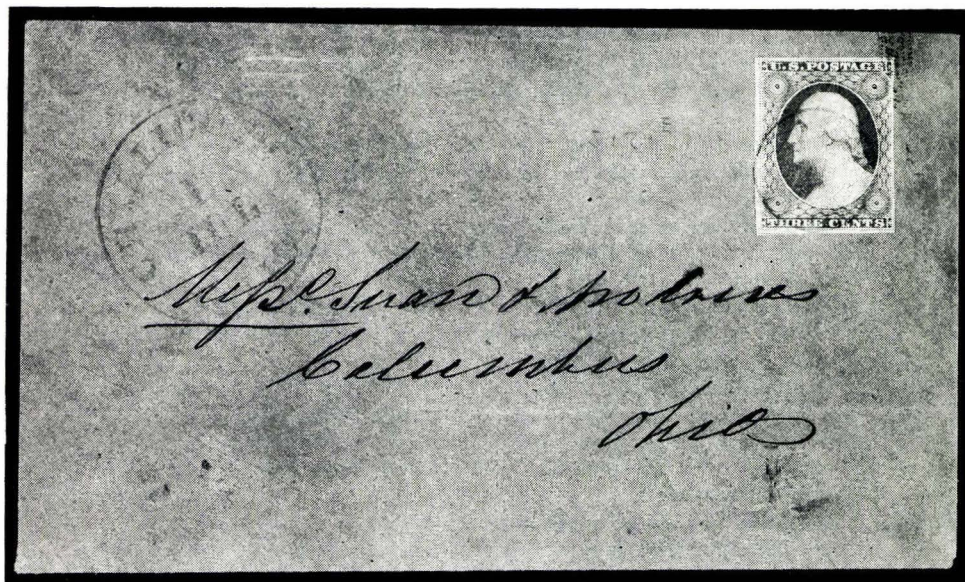 U.S. POSTAGE
THREE CENTS
1
Swan & Andrews
Columbus
Ohio